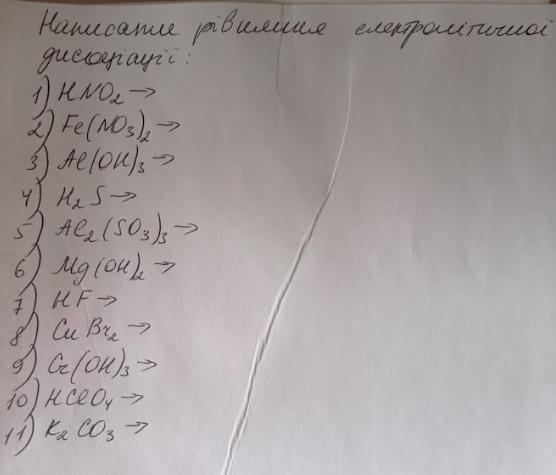 Написати рівняння електролітичної
дисоціації:
1) HNO₂ →
2) Fe(NO₃)₂ →
3) Al(OH)₃ →
4) H₂S →
5) Al₂(SO₃)₃ →
6) Mg(OH)₂ →
7) HF →
8) CuBr₂ →
9) Cr(OH)₃ →
10) HClO₄ →
11) K₂CO₃ →